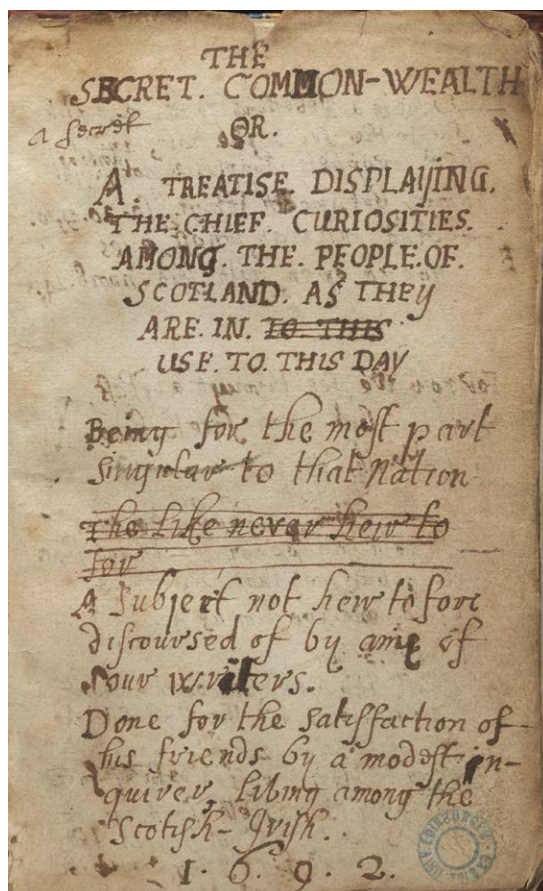 THE
SECRET. COMMON-WEALTH
a Secret
OR.
A. TREATISE. DISPLAYING.
THE. CHIEF. CURIOSITIES.
AMONG. THE. PEOPLE. OF.
SCOTLAND. AS THEY
ARE. IN. TO THIS
USE. TO. THIS DAY
Being for the most part
singular to that Nation
The like never heir to
for
A Subject not heir to fore
discoursed of by anie of
our writers.
Done for the satisfaction of
his friends by a modest in-
quirer, living among the
Scotish-Irish.
1.6.9.2.